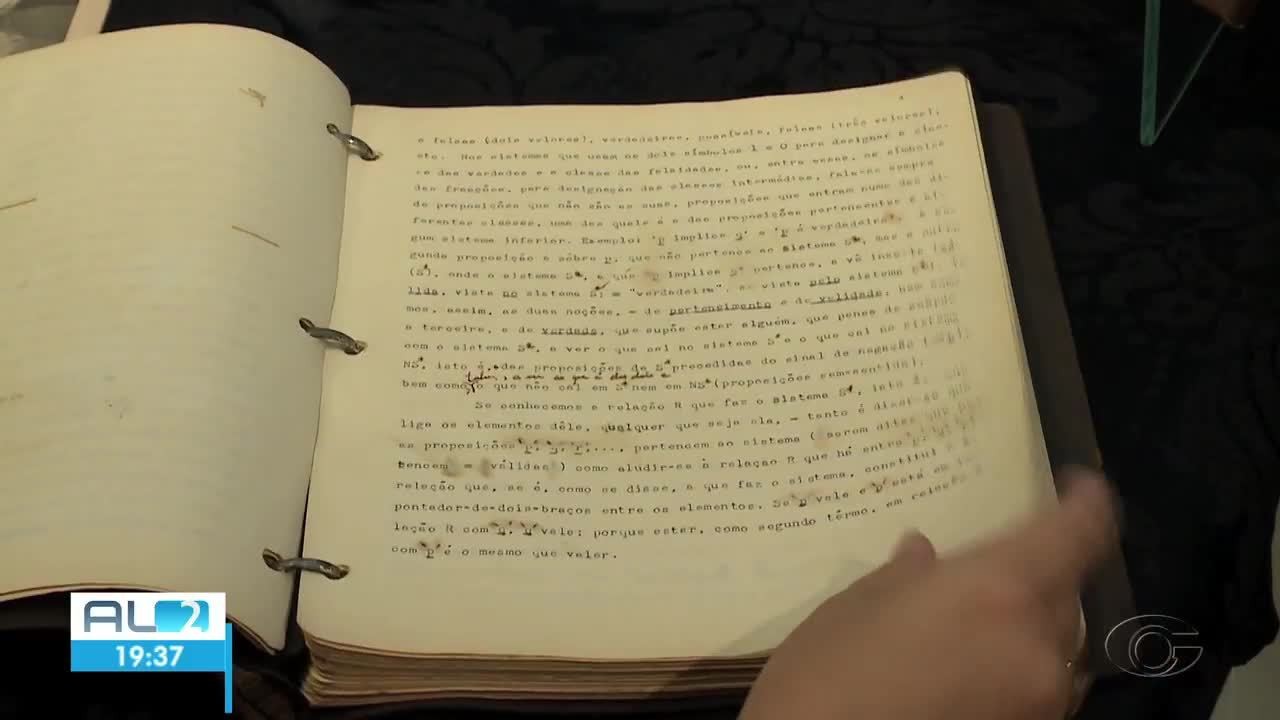 e falsas (dois valores), verdadeiras, possíveis, falsas (três valores),
etc. Nos sistemas que usam os dois símbolos 1 e 0 para designar a clas-
se das verdades e a classe das falsidades, ou, entre esses, os símbolos
das frações, para designação das classes intermédias, fala-se sempre
de proposições que não são as suas, proposições que entram numa das di-
ferentes classes, uma das quais é a das proposições pertencentes a al-
gum sistema inferior. Exemplo: 'p implica q' e 'p é verdadeira'. A se-
gunda proposição é sôbre p, que não pertence ao sistema S
(S'), onde o sistema S, a que p implica pertence, e vê
lida, vista no sistema S; = "verdadeira", se vista pelo sistema
mos, assim, as duas noções, - de pertencimento e de validade;
a terceira, e de verdade, que supõe ester alguém, que pensa de acôrdo
com o sistema S, a ver o que cai no sistema S e o que cai no sistema
NS, isto é, das proposições de S precedidas do sinal de negação
bem como o que não cai em S nem em NS (proposições sem-sentido).
Se conhecemos a relação R que faz o sistema S, isto é,
liga os elementos dêle, qualquer que seja ela, - tanto é dizer-se que
as proposições p, q, r,..., pertencem ao sistema ( serem ditas que per-
tencem = válidas ) como aludir-se à relação R que há entre
relação que, se é, como se disse, a que faz o sistema, constitui
pontador-de-dois-braços entre os elementos. Se p vale e p está em re-
lação R com q, q vale; porque estar, como segundo têrmo, em relação
com p é o mesmo que valer.
AL2
19:37